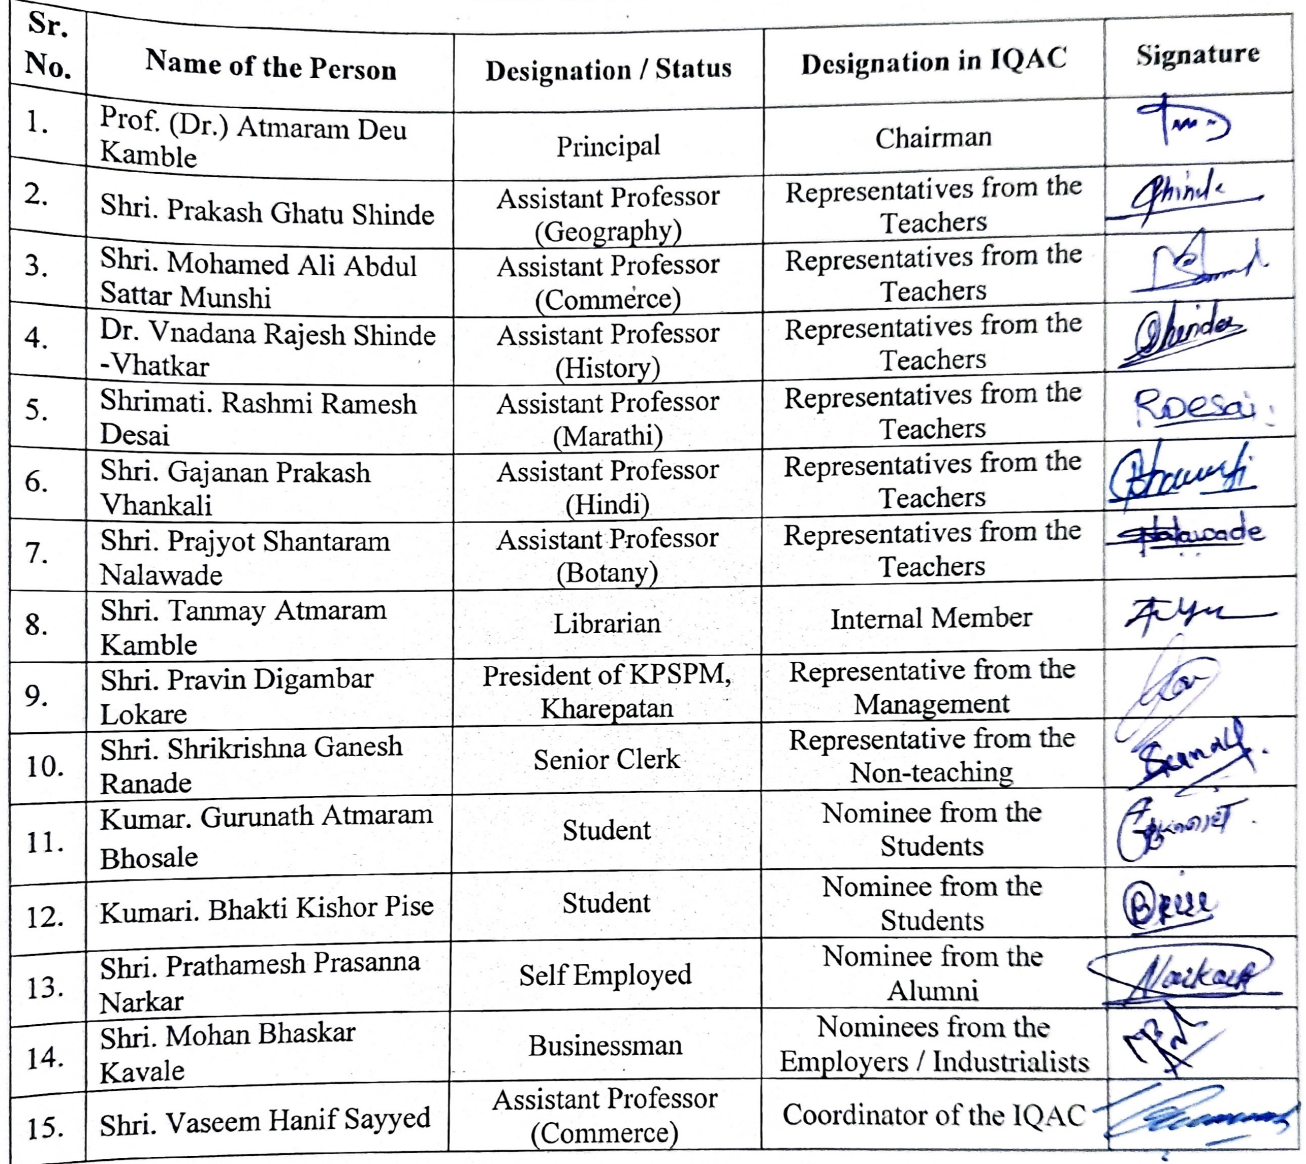 Sr.
No.
Name of the Person
Designation / Status
Designation in IQAC
Signature
1.
Prof. (Dr.) Atmaram Deu
Kamble
Principal
Chairman
2.
Shri. Prakash Ghatu Shinde
Assistant Professor
(Geography)
Representatives from the
Teachers
3.
Shri. Mohamed Ali Abdul
Sattar Munshi
Assistant Professor
(Commerce)
Representatives from the
Teachers
4.
Dr. Vnadana Rajesh Shinde
-Vhatkar
Assistant Professor
(History)
Representatives from the
Teachers
5.
Shrimati. Rashmi Ramesh
Desai
Assistant Professor
(Marathi)
Representatives from the
Teachers
RDesai
6.
Shri. Gajanan Prakash
Vhankali
Assistant Professor
(Hindi)
Representatives from the
Teachers
7.
Shri. Prajyot Shantaram
Nalawade
Assistant Professor
(Botany)
Representatives from the
Teachers
8.
Shri. Tanmay Atmaram
Kamble
Librarian
Internal Member
9.
Shri. Pravin Digambar
Lokare
President of KPSPM,
Kharepatan
Representative from the
Management
10.
Shri. Shrikrishna Ganesh
Ranade
Senior Clerk
Representative from the
Non-teaching
11.
Kumar. Gurunath Atmaram
Bhosale
Student
Nominee from the
Students
12.
Kumari. Bhakti Kishor Pise
Student
Nominee from the
Students
13.
Shri. Prathamesh Prasanna
Narkar
Self Employed
Nominee from the
Alumni
14.
Shri. Mohan Bhaskar
Kavale
Businessman
Nominees from the
Employers / Industrialists
15.
Shri. Vaseem Hanif Sayyed
Assistant Professor
(Commerce)
Coordinator of the IQAC